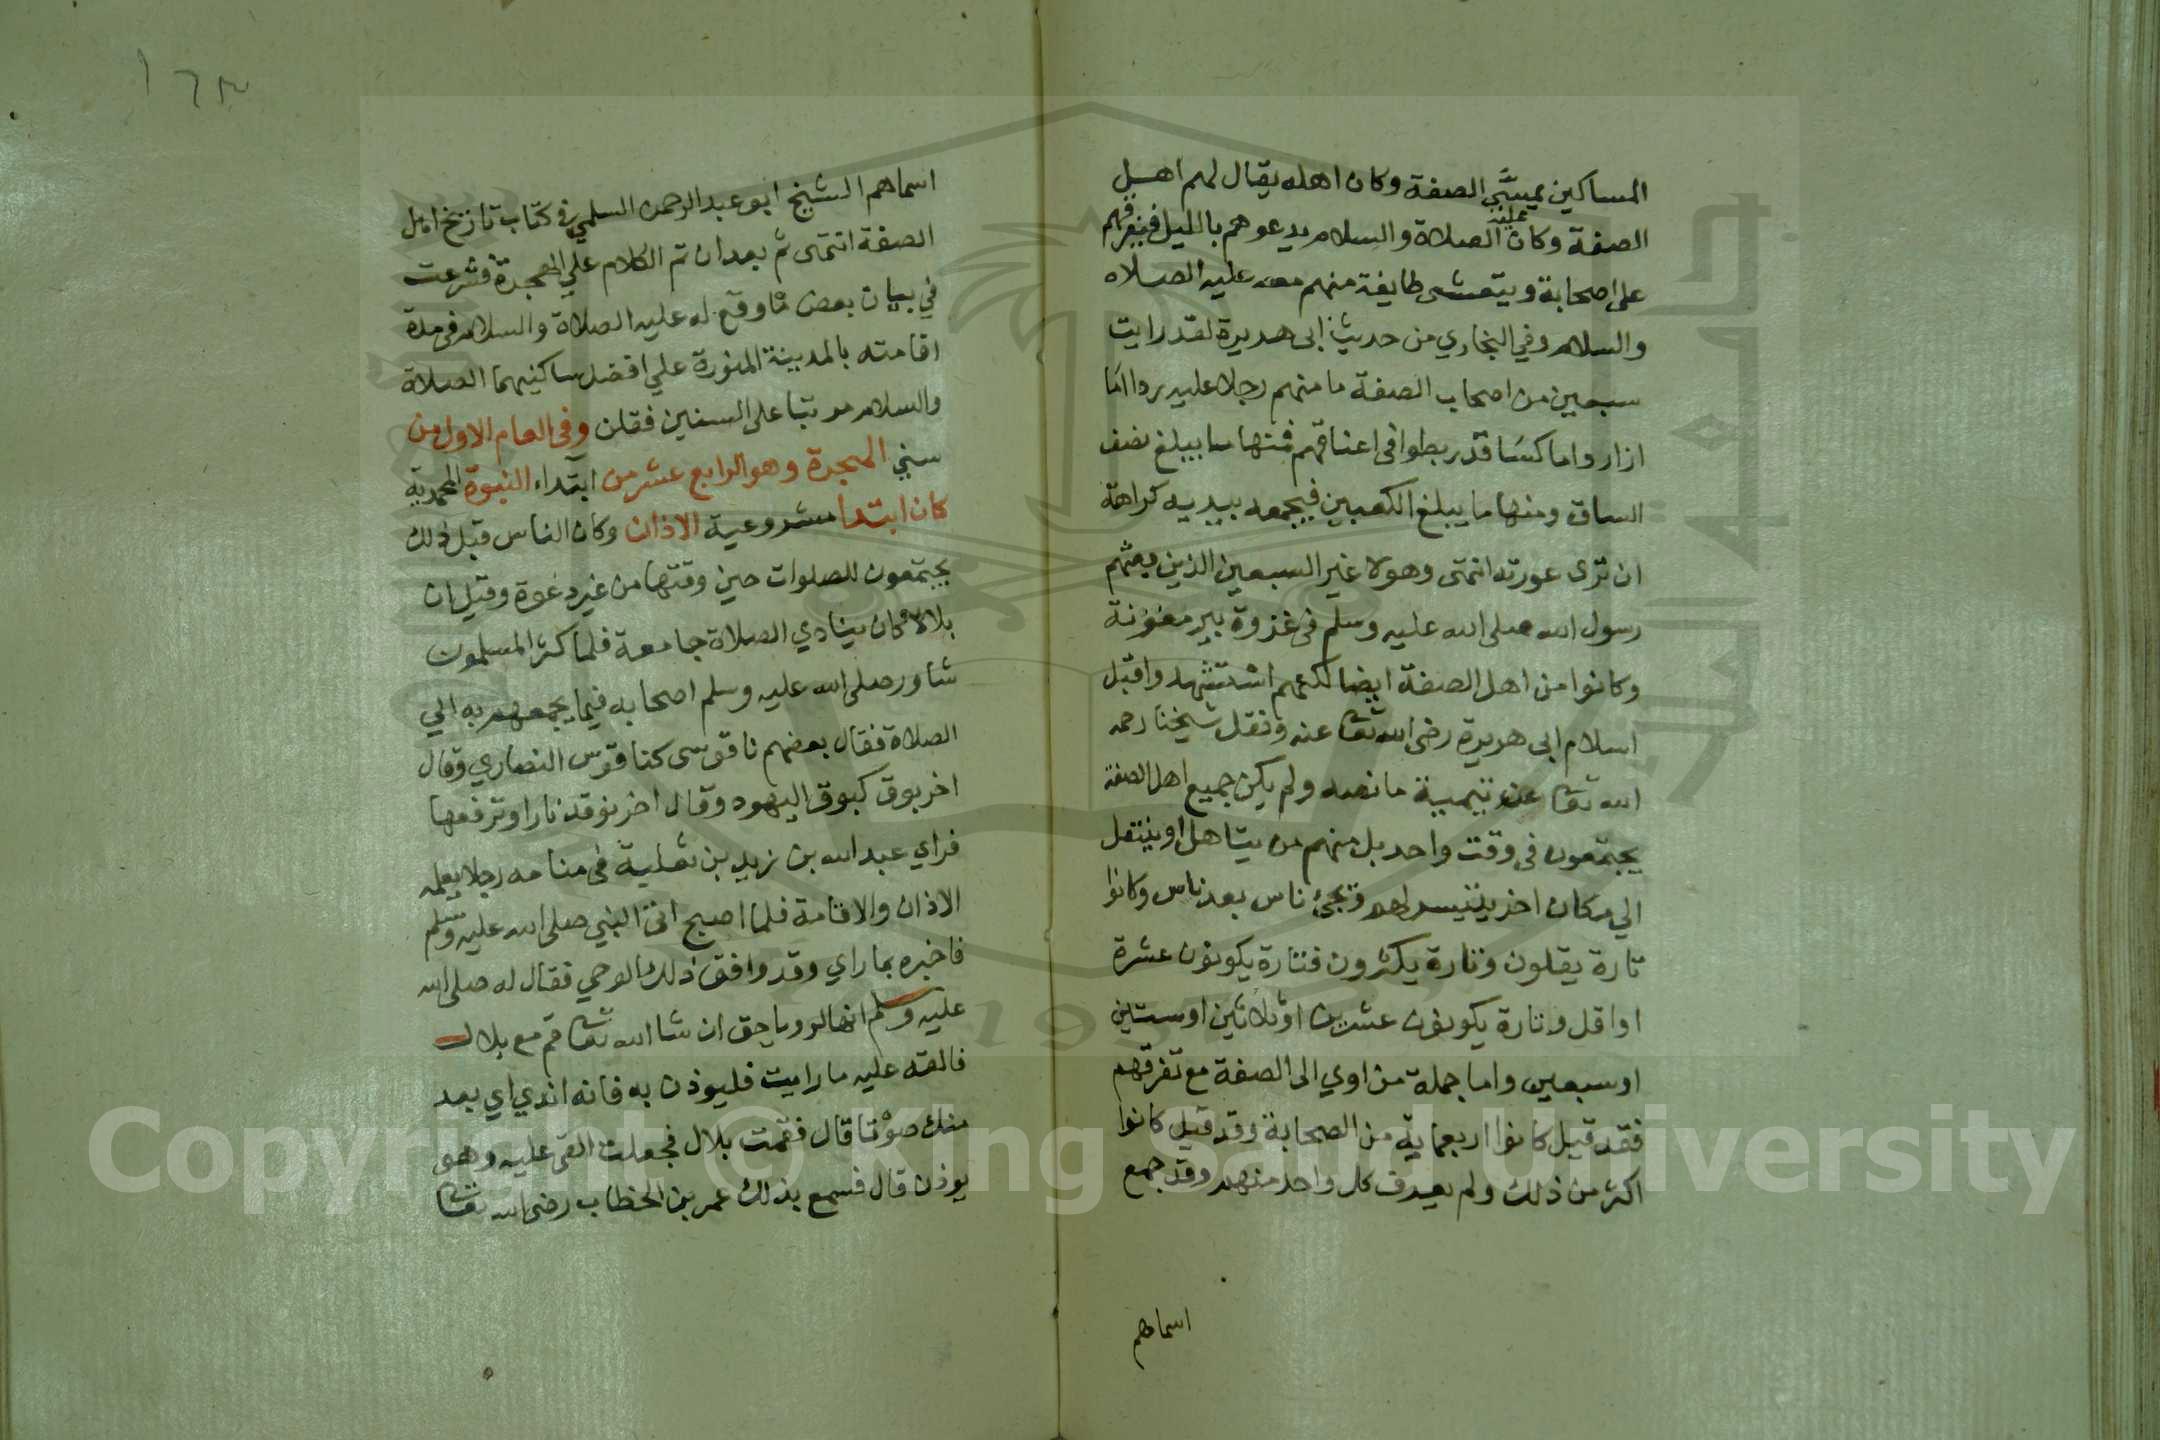 المساكين يسمي الصفة وكان اهله يقال لهم اهل
الصفة وكان عليه الصلاة والسلام يدعوهم بالليل فيفرقهم
على اصحابة ويتعشى طايفة منهم معه عليه الصلاه
والسلام وفي البخاري من حديث ابى هريرة لقد رايت
سبعين من اصحاب الصفة ما منهم رجلا عليه ردا اما
ازار واما كسا قد ربطوا فى اعناقهم فمنها ما يبلغ نصف
الساق ومنها ما يبلغ الكعبين فيجمعه بيديه كراهة
ان ترى عورته انتهى وهولا غير السبعين الذين بعثهم
رسول الله صلى الله عليه وسلم فى غزوة بير معونة
وكانوا من اهل الصفة ايضا لكنهم استشهدوا قبل
اسلام ابى هريرة رضى الله تعا عنه ونقل شيخنا رحمه
الله تعا عن تيمية ما نصه ولم يكن جميع اهل الصفة
يجتمعون فى وقت واحد بل منهم من يتاهل او ينتقل
الي مكان اخر يتيسر له ويجئ ناس بعد ناس وكانوا
تارة يقلون وتارة يكثرون فتارة يكونون عشرة
او اقل وتارة يكونون عشرين او ثلاثين او ستين
او سبعين واما جملة من اوي الى الصفة مع تفرقهم
فقد قيل كانوا اربعماية من الصحابة وقد قيل كانوا
اكثر من ذلك ولم يعرف كل واحد منهم وقد جمع
اسماهم
١٦٣
اسماهم الشيخ ابو عبد الرحمن السلمي فى كتاب تاريخ اهل
الصفة انتهى ثم بعد ان تم الكلام علي الهجرة فشرعت
في بيان بعض ما وقع له عليه الصلاة والسلام فى مدة
اقامته بالمدينة المنورة علي افضل ساكنيهما الصلاة
والسلام مرتبا على السنين فقلت وفى العام الاول من
سني الهجرة وهو الرابع عشر من ابتداء النبوة المحمدية
كان ابتدا مشروعية الاذان وكان الناس قبل ذلك
يجتمعون للصلوات حين وقتها من غير دعوة وقيل ان
بلالا كان ينادي الصلاة جامعة فلما كثر المسلمون
شاور صلى الله عليه وسلم اصحابه فيما يجمعهم به الي
الصلاة فقال بعضهم ناقوس كناقوس النصاري وقال
اخر بوق كبوق اليهود وقال اخر نوقد نارا وترفعها
فراي عبد الله بن زيد بن ثعلبة فى منامه رجلا يعلمه
الاذان والاقامة فلما اصبح اتى النبي صلى الله عليه وسلم
فاخبره بما راي وقد وافق ذلك الوحي فقال له صلى الله
عليه وسلم انها لرويا حق ان شا الله تعا قم مع بلال
فالقه عليه ما رايت فليوذن به فانه اندي اي بعد
منك صوتا قال فقمت بلال فجعلت القى عليه وهو
يوذن قال فسمع بذلك عمر بن الخطاب رضى الله تعا
Copyright © King Saud University